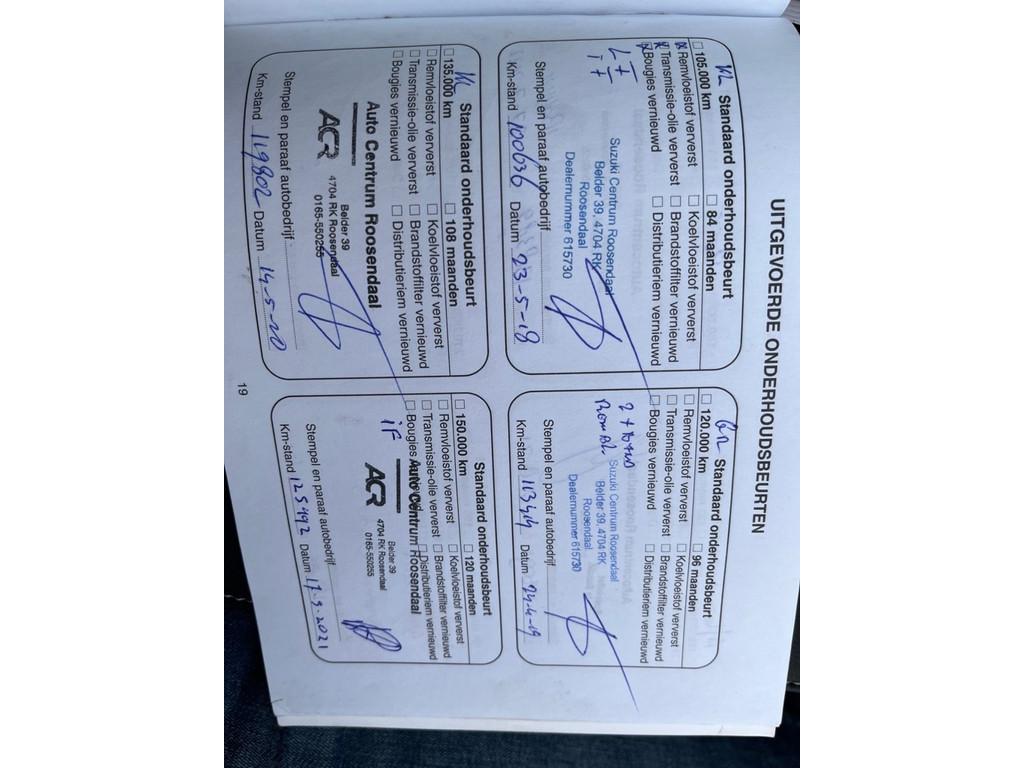 UITGEVOERDE ONDERHOUDSBEURTEN
KL Standaard onderhoudsbeurt
105.000 km 84 maanden
Remvloeistof ververst Koelvloeistof ververst
Transmissie-olie ververst Brandstoffilter vernieuwd
Bougies vernieuwd Distributieriem vernieuwd
Suzuki Centrum Roosendaal
Belder 39, 4704 RK
Roosendaal
Dealernummer 615730
Stempel en paraaf autobedrijf
Km-stand 100636 Datum 23-5-18
Standaard onderhoudsbeurt
120.000 km 96 maanden
Remvloeistof ververst Koelvloeistof ververst
Transmissie-olie ververst Brandstoffilter vernieuwd
Bougies vernieuwd Distributieriem vernieuwd
Suzuki Centrum Roosendaal
Belder 39, 4704 RK
Roosendaal
Dealernummer 615730
Stempel en paraaf autobedrijf
Km-stand 113414 Datum 24-4-19
KL Standaard onderhoudsbeurt
135.000 km 108 maanden
Remvloeistof ververst Koelvloeistof ververst
Transmissie-olie ververst Brandstoffilter vernieuwd
Bougies vernieuwd Distributieriem vernieuwd
Auto Centrum Roosendaal
ACR
Belder 39
4704 RK Roosendaal
0165-550255
Stempel en paraaf autobedrijf
Km-stand 119802 Datum 14-5-20
Standaard onderhoudsbeurt
150.000 km 120 maanden
Remvloeistof ververst Koelvloeistof ververst
Transmissie-olie ververst Brandstoffilter vernieuwd
Bougies vernieuwd Distributieriem vernieuwd
Auto Centrum Roosendaal
ACR
Belder 39
4704 RK Roosendaal
0165-550255
Stempel en paraaf autobedrijf
Km-stand 125492 Datum 17-9-2021
19